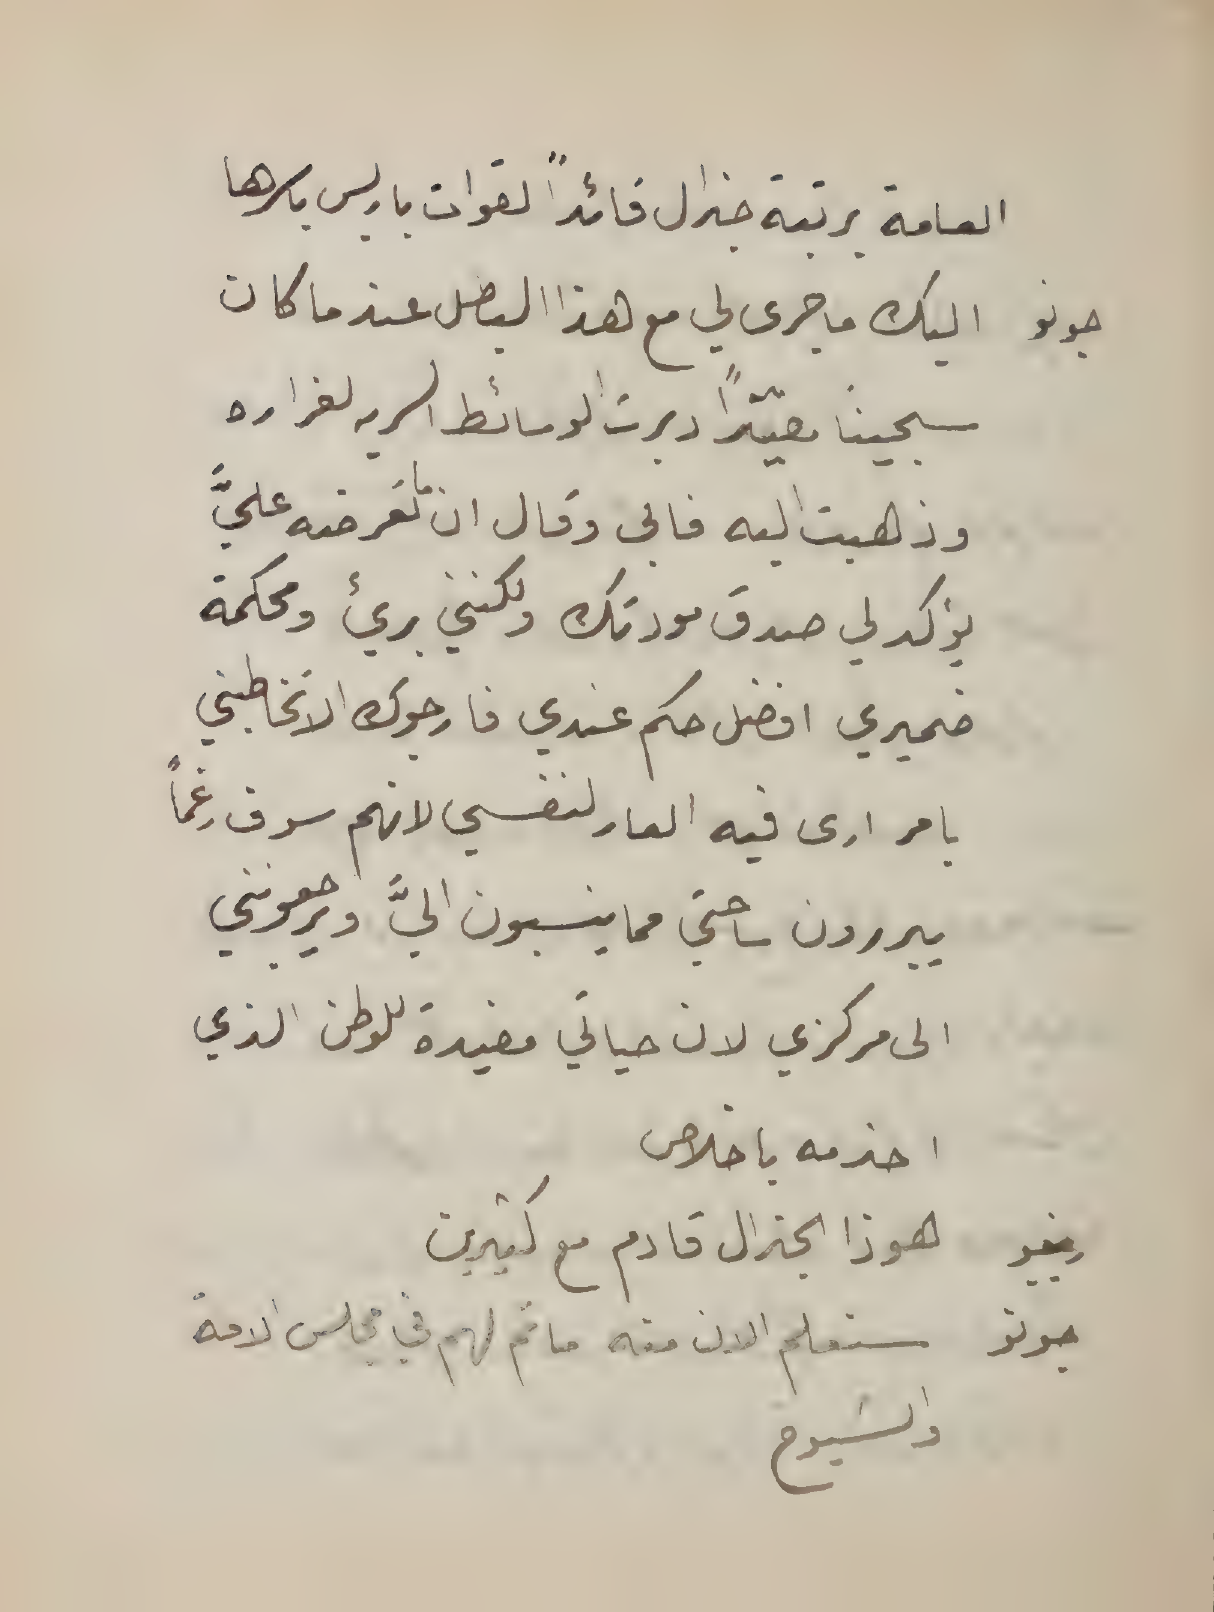 العامة برتبة جنرال قائداً لقوات باريس باسرها
جونو اليك ما جرى لي مع هذا البطل عندما كان
سجيناً مقيّداً دبرت الوسائط السريه لفراره
وذهبت اليه فابى وقال ان ما تعرضه عليَّ
يؤكد لي صدق مودتك ولكنني بريئ ومحكمة
ضميري افضل حكم عندي فارجوك الا تخاطبني
بامر ارى فيه العار لنفسي لانهم سوف رغماً
يبررون ساحتي مما ينسبون اليَّ ويرجعونني
الى مركزي لان حياتي مفيدة للوطن الذي
اخدمه باخلاص
هوذا الجنرال قادم مع كثيرين
جونو ستعلم الان منه ما تم لهم في مجلس الامة
والشيوخ